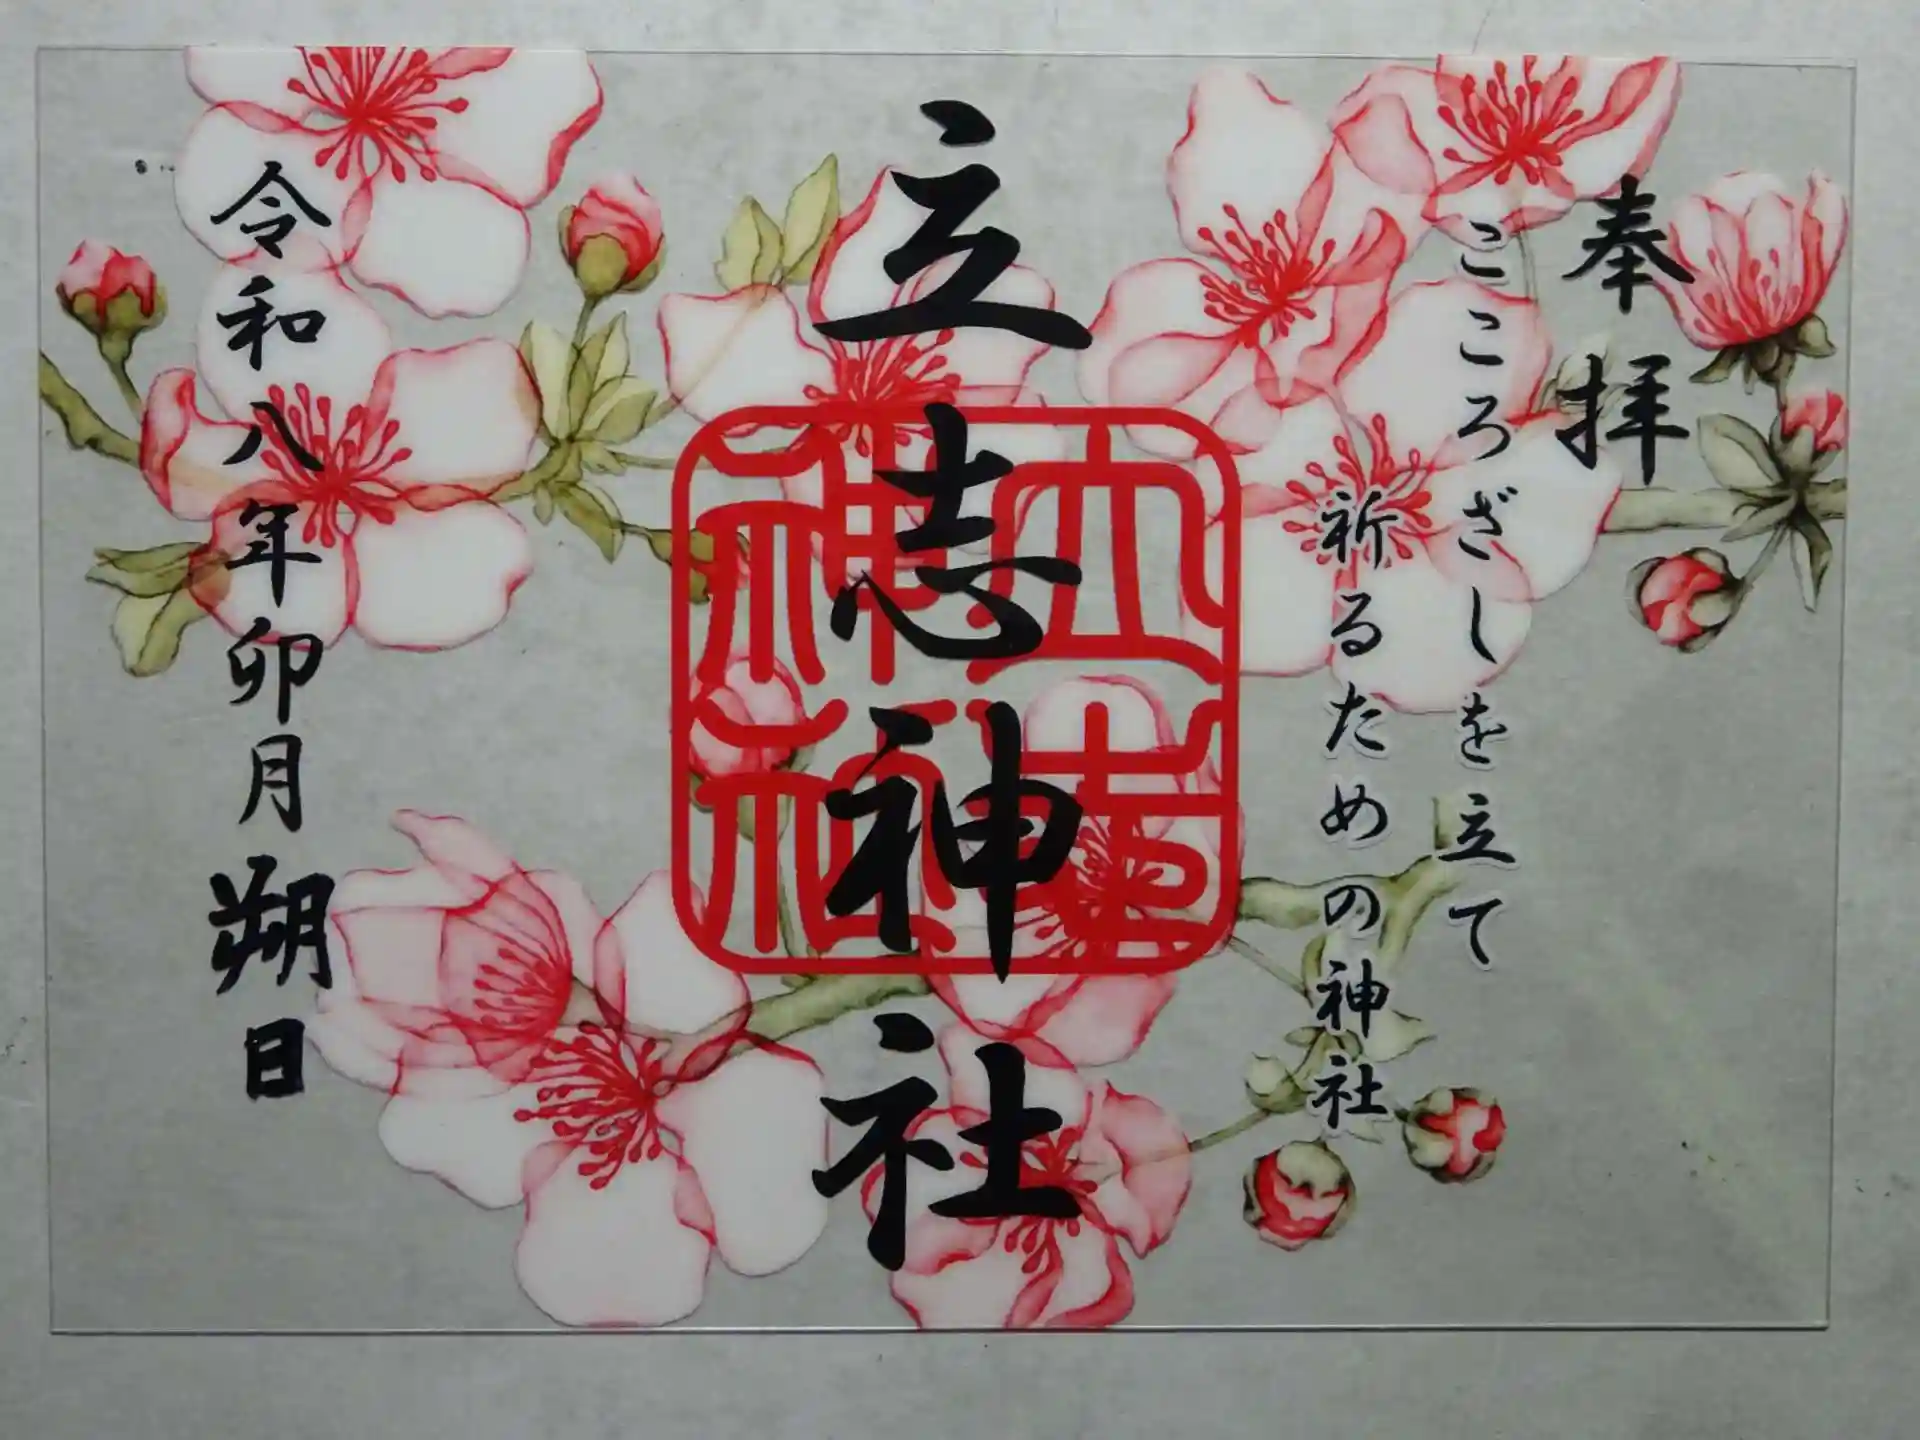 奉拝
こころざしを立て
祈るための神社
立志神社
立志神社
令和八年卯月朔日